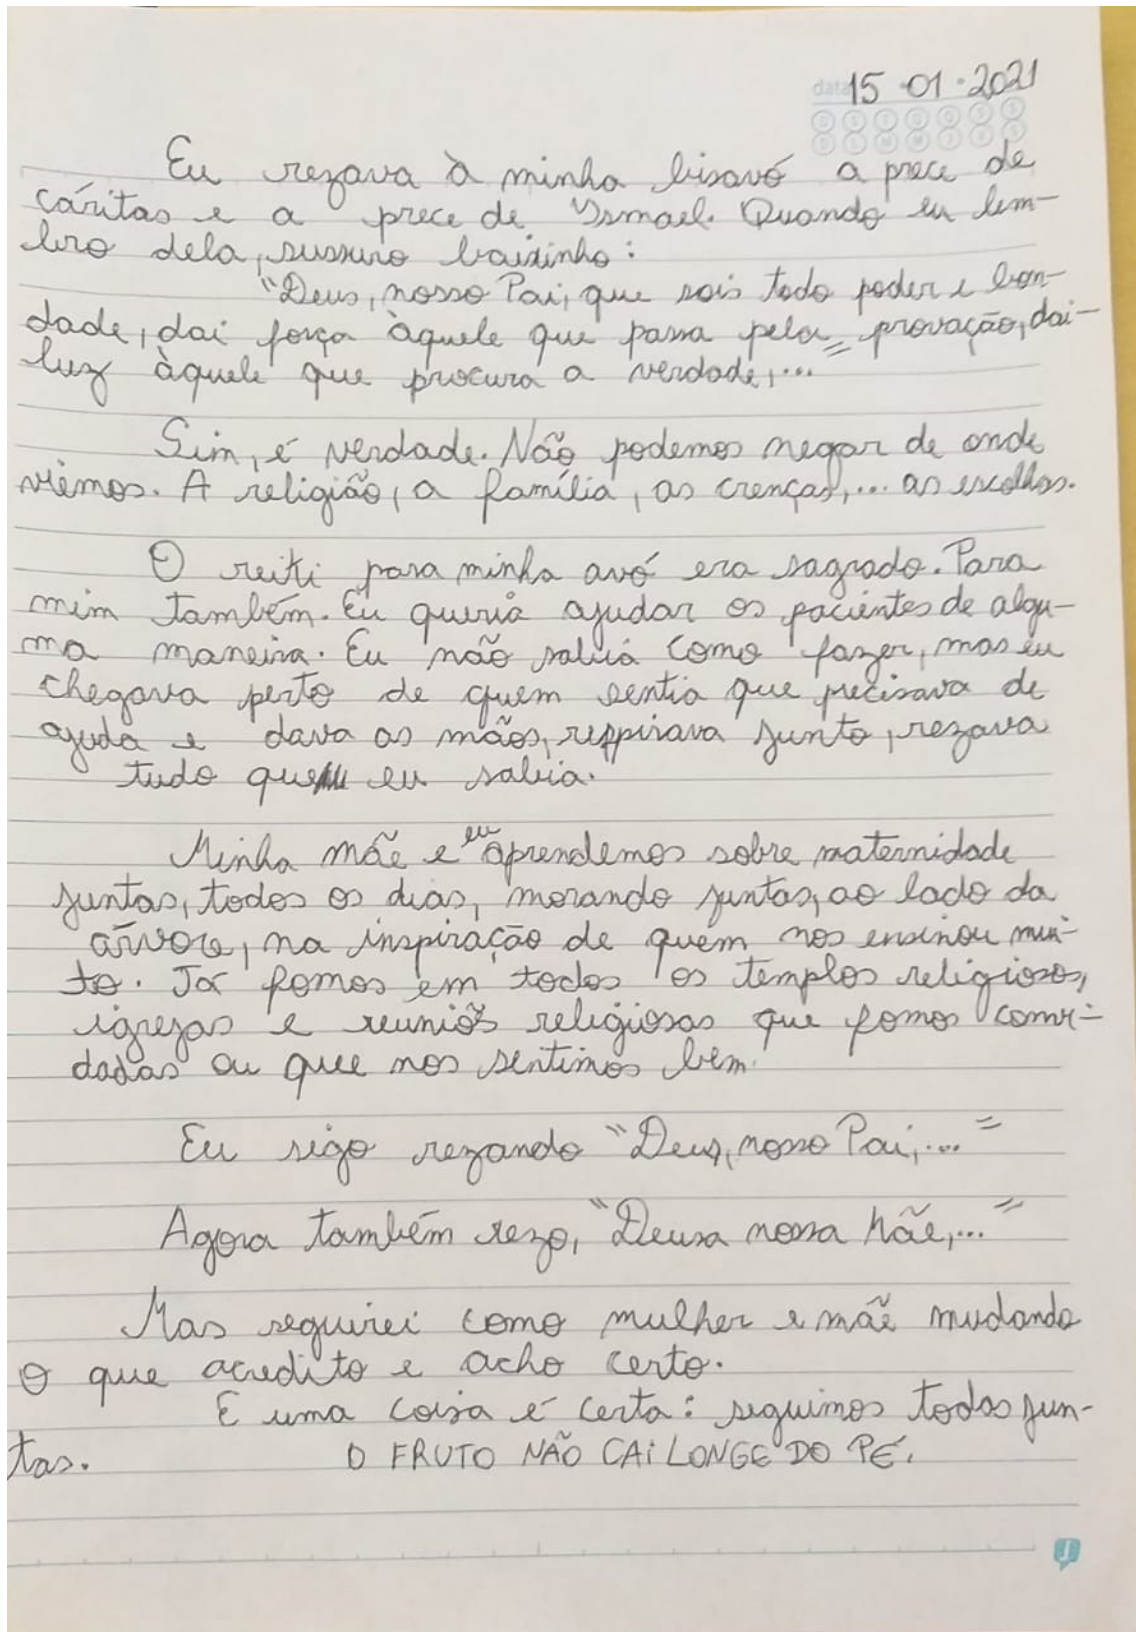 data 15 · 01 · 2021
D S T Q Q S S
D L M M J V S
Eu rezava à minha bisavó a prece de
cáritas e a prece de Ismael. Quando eu lem-
bro dela, sussuro baixinho:
"Deus, nosso Pai, que sois todo poder e bon-
dade, dai força àquele que passa pela provação, dai-
luz àquele que procura a verdade,..."
Sim, é verdade. Não podemos negar de onde
viemos. A religião, a família, as crenças,... as escolhas.
O reiki para minha avó era sagrado. Para
mim também. Eu queria ajudar os pacientes de algu-
ma maneira. Eu não sabia como fazer, mas eu
chegava perto de quem sentia que precisava de
ajuda e dava as mãos, respirava junto, rezava
tudo que eu sabia.
Minha mãe e eu aprendemos sobre maternidade
juntas, todos os dias, morando juntas, ao lado da
árvore, na inspiração de quem nos ensinou mui-
to. Já fomos em todos os templos religiosos,
igrejas e reuniões religiosas que fomos convi-
dadas ou que nos sentimos bem.
Eu sigo rezando "Deus, nosso Pai,..."
Agora também rezo, "Deusa nossa Mãe,..."
Mas seguirei como mulher e mãe mudando
o que acredito e acho certo.
E uma coisa é certa: seguimos todas jun-
tas. O FRUTO NÃO CAI LONGE DO PÉ.